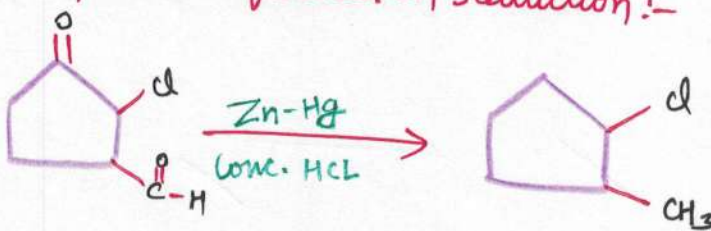 reduction :-
O
Cl
Zn-Hg
Conc. HCL
O
C-H
Cl
CH3